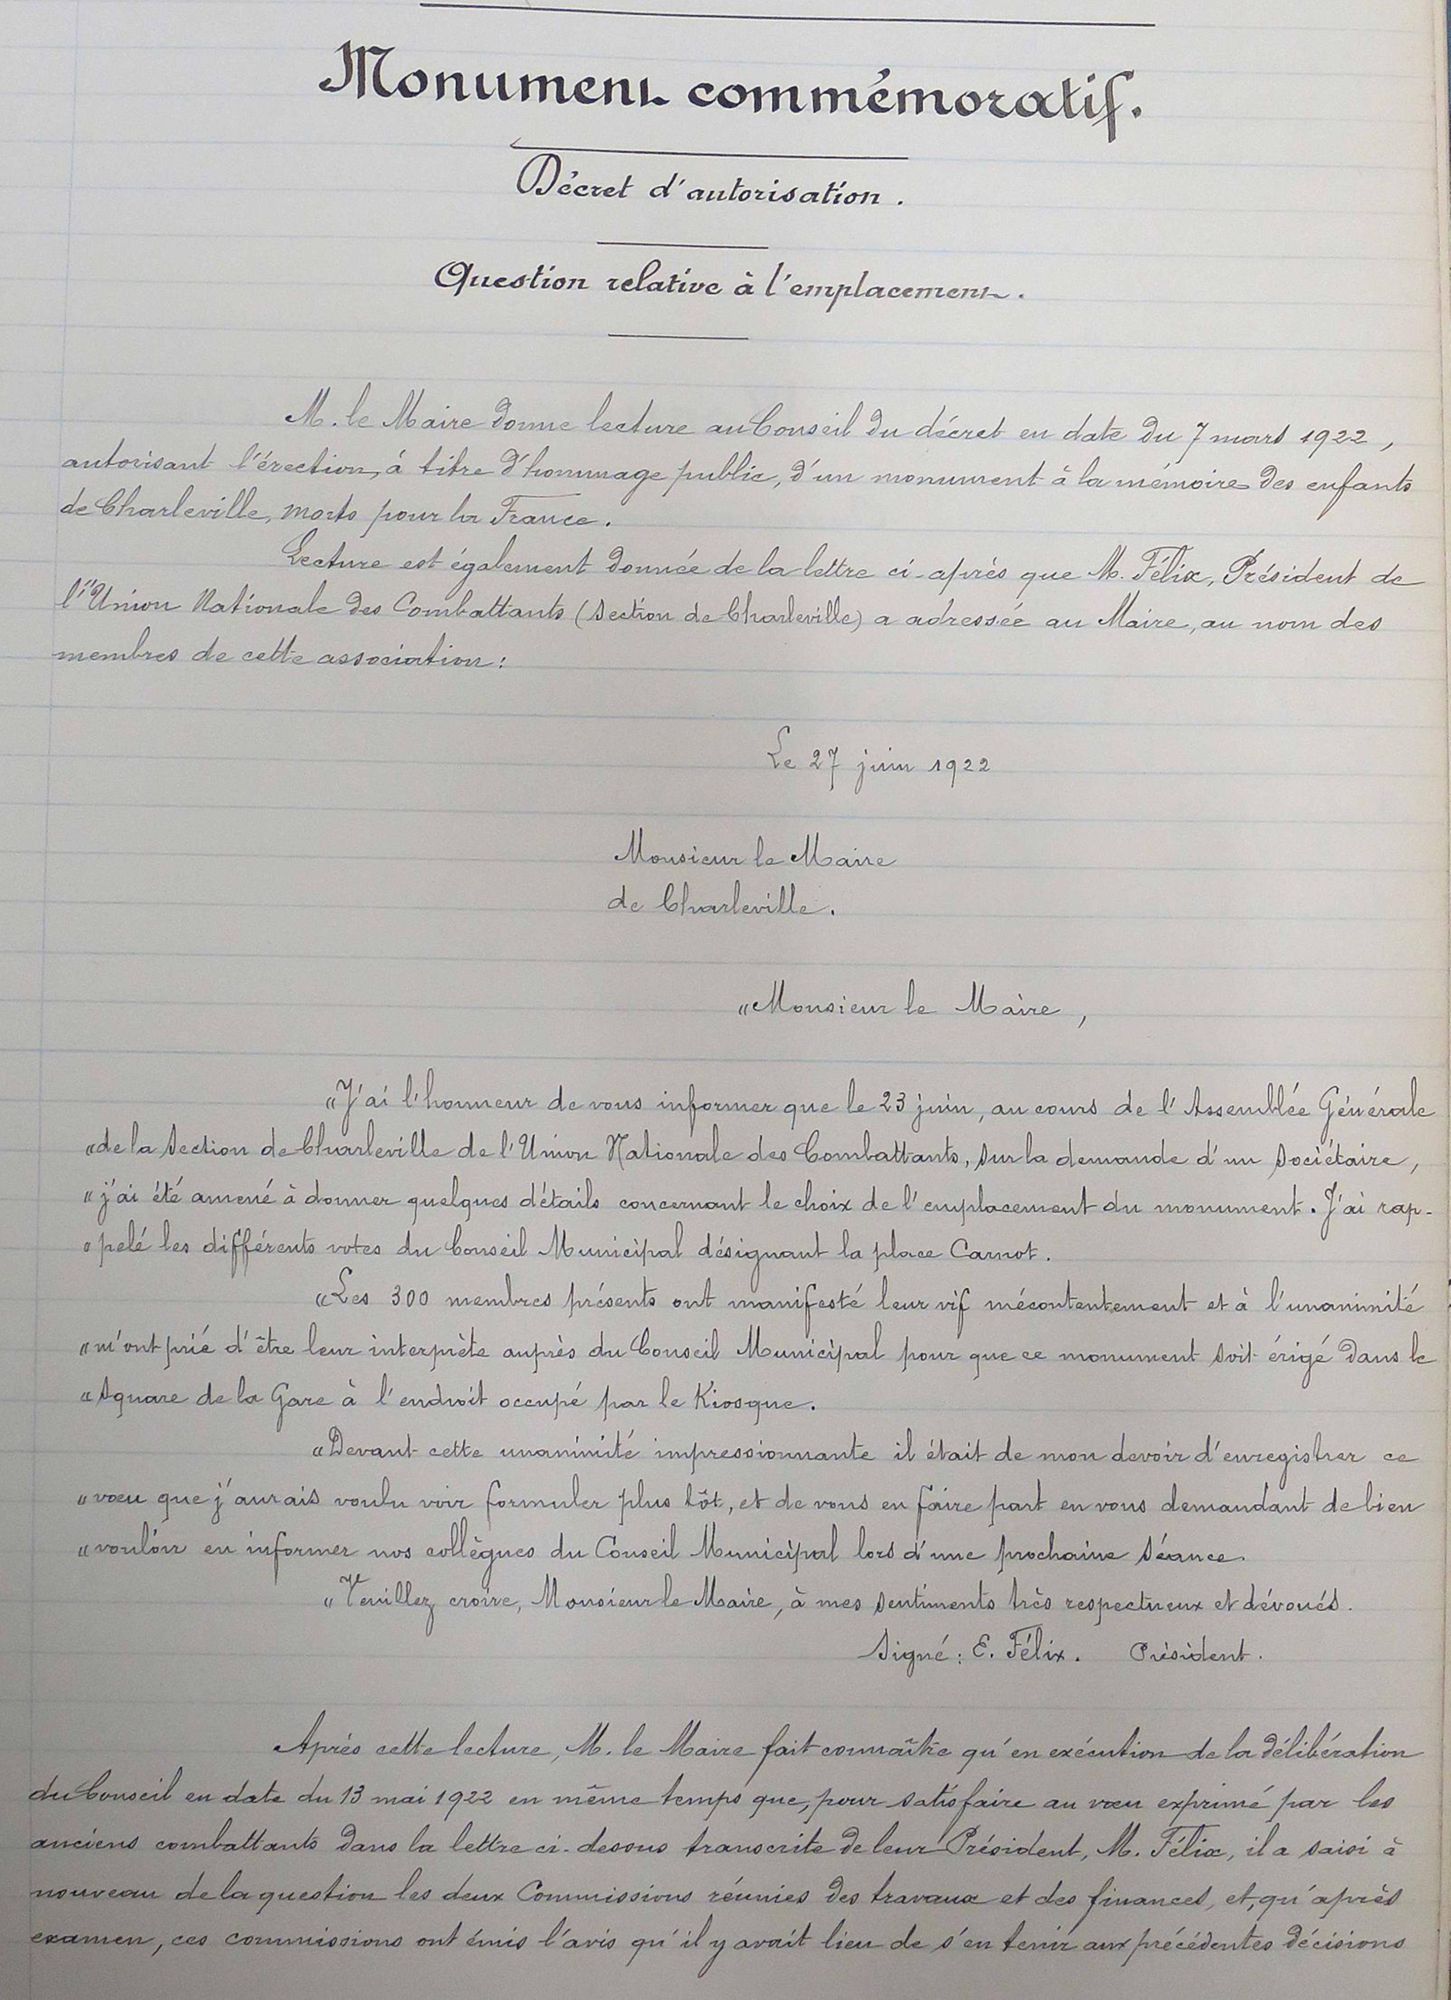 Monument commémoratif.
Décret d'autorisation.
Question relative à l'emplacement.
M. le Maire donne lecture au Conseil du décret en date du 7 mars 1922,
autorisant l'érection, à titre d'hommage public, d'un monument à la mémoire des enfants
de Charleville, morts pour la France.
Lecture est également donnée de la lettre ci-après que M. Félix, Président de
l'Union Nationale des Combattants (Section de Charleville) a adressée au Maire, au nom des
membres de cette association:
Le 27 juin 1922
Monsieur le Maire
de Charleville.
"Monsieur le Maire,
"J'ai l'honneur de vous informer que le 23 juin, au cours de l'Assemblée Générale
"de la Section de Charleville de l'Union Nationale des Combattants, sur la demande d'un Sociétaire,
"j'ai été amené à donner quelques détails concernant le choix de l'emplacement du monument. J'ai rap-
"pelé les différents votes du Conseil Municipal désignant la place Carnot.
"Les 300 membres présents ont manifesté leur vif mécontentement et à l'unanimité
"m'ont prié d'être leur interprète auprès du Conseil Municipal pour que ce monument soit érigé dans le
"Square de la Gare à l'endroit occupé par le Kiosque.
"Devant cette unanimité impressionnante il était de mon devoir d'enregistrer ce
"vœu que j'aurais voulu voir formuler plus tôt, et de vous en faire part en vous demandant de bien
"vouloir en informer nos collègues du Conseil Municipal lors d'une prochaine séance.
"Veuillez croire, Monsieur le Maire, à mes sentiments très respectueux et dévoués.
Signé: E. Félix. Président.
Après cette lecture, M. le Maire fait connaître qu'en exécution de la délibération
du Conseil en date du 13 mai 1922 en même temps que, pour satisfaire au vœu exprimé par les
anciens combattants dans la lettre ci-dessus transcrite de leur Président, M. Félix, il a saisi à
nouveau de la question les deux Commissions réunies des travaux et des finances, et, qu'après
examen, ces commissions ont émis l'avis qu'il y avait lieu de s'en tenir aux précédentes décisions